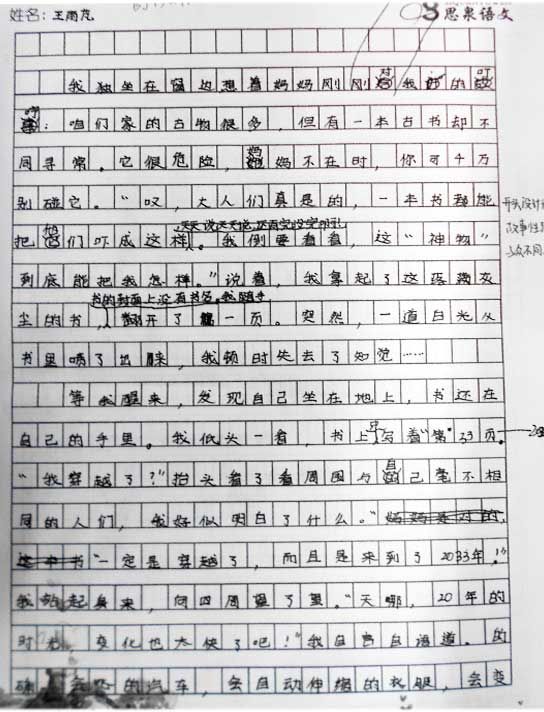 姓名：王雨萱
思泉语文
我独坐在窗边想着妈妈刚刚对我的叮
咛：咱们家的古物很多，但有一本古书却不
同寻常。它很危险，妈妈不在时，你可千万
别碰它。“哎，大人们真是的，一本书都能
天天说天天说，
把他们吓成这样。我倒要看看，这“神物”
到底能把我怎样。”说着，我拿起了这落满灰
书的封面上没有书名。我随手
尘的书，翻开了第一页。突然，一道白光从
书里喷了出来，我顿时失去了知觉……
等我醒来，发现自己坐在地上，书还在
自己的手里。我低头一看，书上写着“第”33页。
“我穿越了？”抬头看了看周围与自己毫不相
同的人们，我好似明白了什么。“妈妈是对的，
这本书“一定是穿越了，而且是来到了2033年。”
我站起身来，向四周望了望。“天哪，20年的
时光，变化也太快了吧！”我自言自语道。的
确，的汽车，会自动伸缩的衣服，会变
开头设计
故事性
与众不同